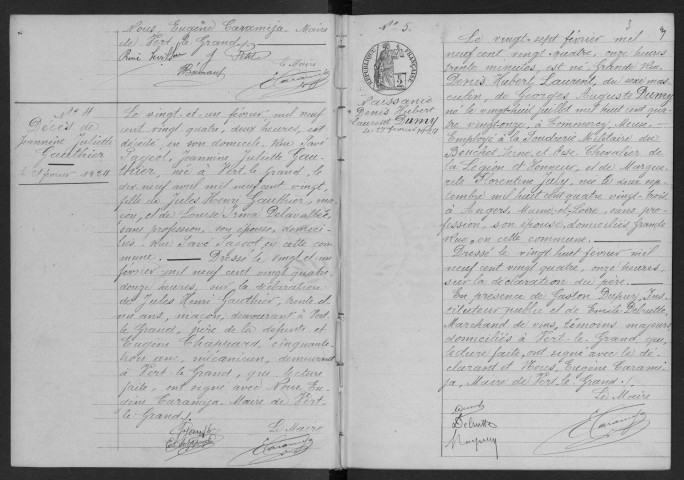 Nous, Eugène Caramija Maire
de Vert le Grand /
Le Maire
N° 4
Décès de
Jeannine Juliette
Gauthier
le 21 février 1924
Le vingt et un février mil neuf
cent vingt quatre, deux heures, est
décédée en son domicile, Rue Pavé
Pageol, Jeannine Juliette Gau-
thier, née à Vert le grand, le
dix neuf avril mil neuf cent vingt,
fille de Jules Henri Gauthier, ma-
çon, et de Louise Irma
sans profession, son épouse, domici-
liés, Rue Pavé Pageol, en cette com-
mune. — Dressé le vingt et un
février mil neuf cent vingt quatre
douze heures, sur la déclaration
de Jules Henri Gauthier, trente et
un ans, maçon, demeurant à Vert
le Grand, père de la défunte et
Eugène Chapeard, cinquante
trois ans, mécanicien, demeurant
à Vert le Grand, qui, lecture
faite, ont signé avec Nous Eu-
gène Caramija Maire de Vert
le Grand /
Le Maire
N° 5.
RÉPUBLIQUE FRANÇAISE
2
Naissance
Denis Hubert
Laurent Dumy
Le 27 février 1924
3
Le vingt sept février mil
neuf cent vingt quatre, onze heures
trente minutes, est né, Grande Rue
Denis, Hubert, Laurent, du sexe mas-
culin, de Georges Auguste Dumy
né le vingt huit juillet mil huit cent qua-
tre vingt onze, à Commercy, Meuse.
Employé à la Poudrerie Militaire du
Bouchet, Seine et Oise, Chevalier de
la Légion d'Honneur, et de Margue-
rite Florentine July, née le deux sep-
tembre mil huit cent quatre vingt-trois
à Angers, Maine-et-Loire, sans pro-
fession, son épouse, domiciliés Grande
Rue, en cette commune.
Dressé le vingt huit février mil
neuf cent vingt quatre, onze heures,
sur la déclaration du père.
En présence de Gaston Dupuy, Ins-
tituteur public et de Emile Delrutte,
Marchand de vins, témoins majeurs
domiciliés à Vert le Grand, qui,
lecture faite, ont signé avec le dé-
clarant et Nous, Eugène Carami-
ja, Maire de Vert le Grand /
Le Maire
Delrutte